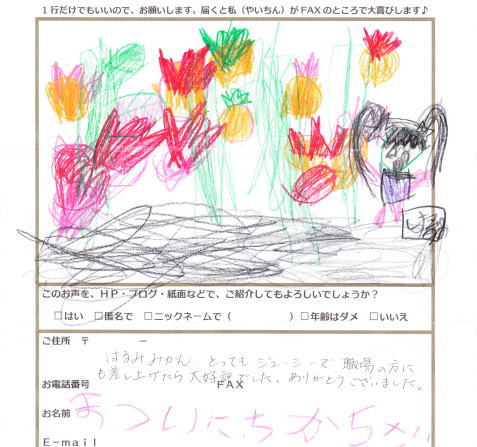 1行だけでもいいので、お願いします。届くと私（やいちん）がFAXのところで大喜びします♪
このお声を、HP・ブログ・紙面などで、ご紹介してもよろしいでしょうか？
□はい □匿名で □ニックネームで（ ）□年齢はダメ □いいえ
ご住所 〒 －
はるみみかん、とってもジューシーで職場の方に
も差し上げたら大好評でした。ありがとうございました。
お電話番号 FAX
お名前
E－mail